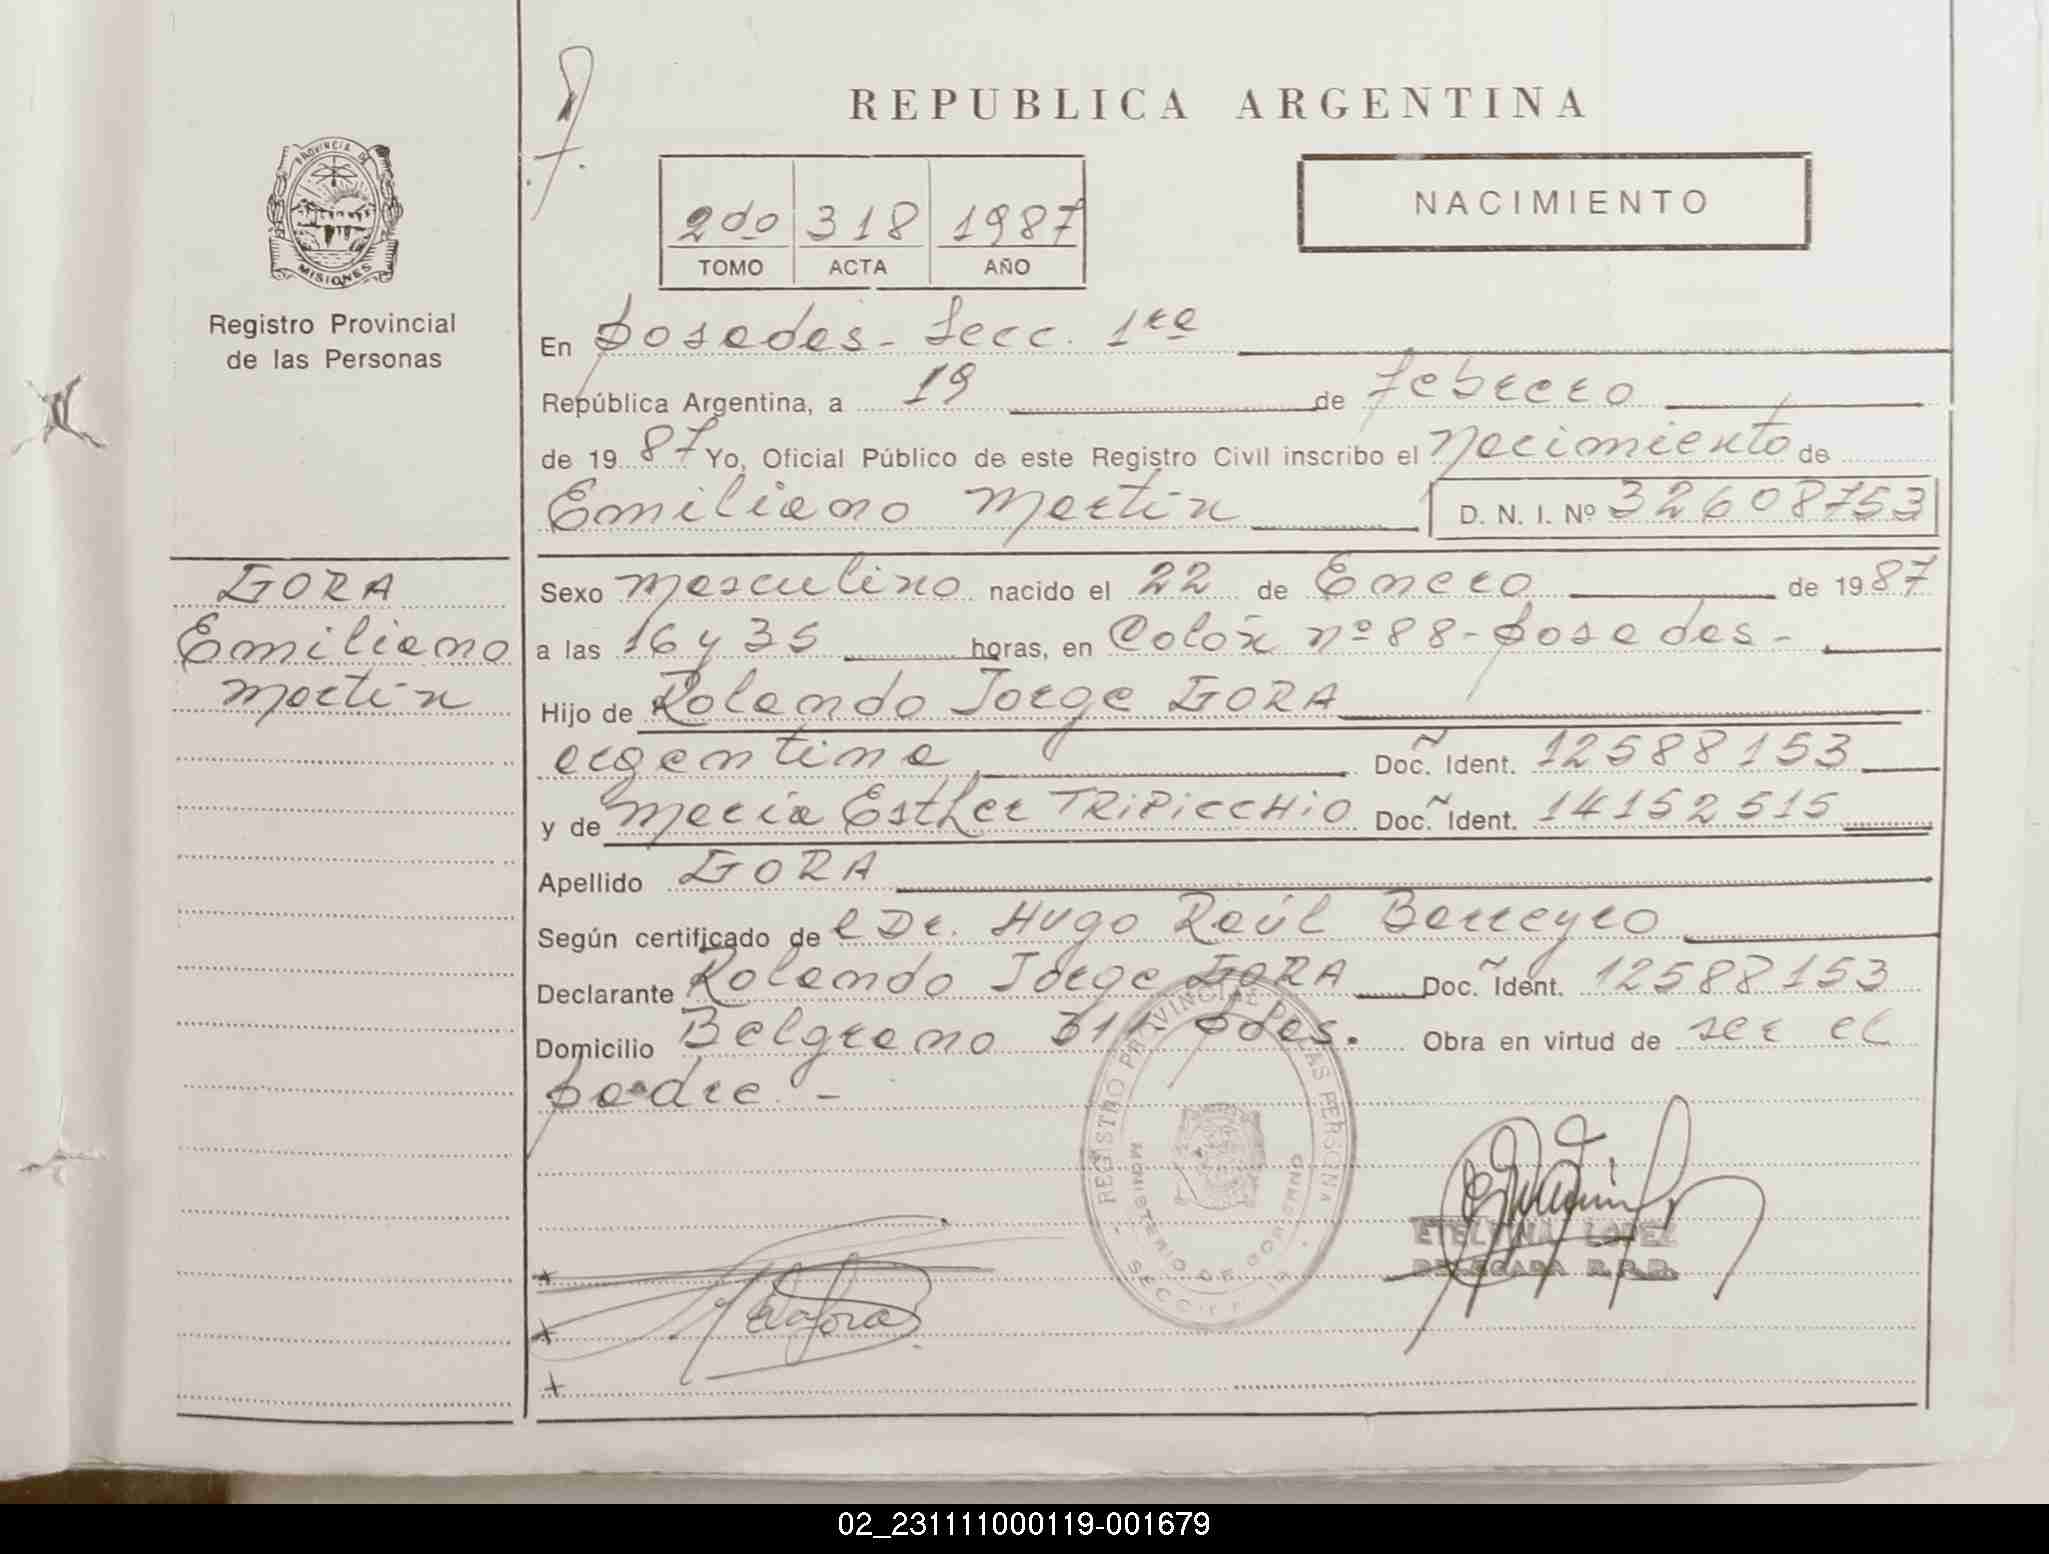 REPUBLICA ARGENTINA
PROVINCIA DE
MISIONES
Registro Provincial
de las Personas
2do 318 1987
TOMO ACTA AÑO
NACIMIENTO
En Posadas - Secc. 1ra
República Argentina, a 19 de febrero
de 1987 Yo, Oficial Público de este Registro Civil inscribo el Nacimiento de
Emiliano Martín D. N. I. Nº 32608753
GORA
Emiliano
Martín
Sexo Masculino nacido el 22 de Enero de 1987
a las 16 y 35 horas, en Colón nº 88 - Posadas -
Hijo de Rolando Jorge GORA
argentina Doc. Ident. 12588153
y de María Esther TRIPICCHIO Doc. Ident. 14152515
Apellido GORA
Según certificado de l Dr. Hugo Raúl Barreyro
Declarante Rolando Jorge GORA Doc. Ident. 12588153
Domicilio Belgrano Pdas. Obra en virtud de ser el
padre. -
REGISTRO PROVINCIAL DE LAS PERSONAS
MINISTERIO DE GOBIERNO
ETELVINA LOPEZ
DELEGADA R.P.P.
02_231111000119-001679